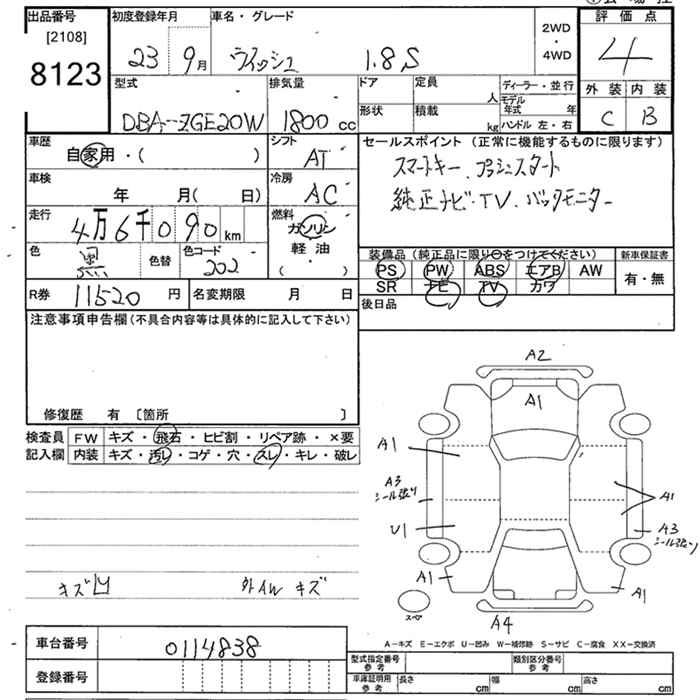 出品番号
[2108]
8123
初度登録年月
23 9月
車名・グレード
ウィッシュ 1.8S
2WD
・
4WD
評価点
4
外装 内装
C B
型式
DBA-ZGE20W
排気量
1800 cc
ドア
形状
定員
人
積載
kg
ディーラー・並行
モデル
年式 年
ハンドル 左・右
車歴
自家用・( )
シフト
AT
セールスポイント (正常に機能するものに限ります)
スマートキー、プッシュスタート
純正ナビ・TV、バックモニター
車検
年 月( 日)
冷房
AC
走行
4万6千090km
燃料
ガソリン
軽・油
( ・ )
色
黒
色替
色コード
202
装備品 (純正品に限り○をつけてください)
PS PW ABS エアB AW
SR ナビ TV カワ
新車保証書
有・無
R券 11520円
名変期限 月 日
後日品
注意事項申告欄(不具合内容等は具体的に記入して下さい)
修復歴 有 [箇所 ]
検査員 FW キズ・飛石・ヒビ割・リペア跡・×要
記入欄 内装 キズ・汚レ・コゲ・穴・スレ・キレ・破レ
A2
A1
A1
A3
シール張り
A1
U1
A3
シール張り
A1
A1
スペア
A4
キズ凹 外AW キズ
車台番号 0114838
登録番号
A-キズ E-エクボ U-凹み W-補修跡 S-サビ C-腐食 XX-交換済
型式指定番号
参考
類別区分番号
参考
車庫証明用
参考
長さ cm 幅 cm 高さ cm